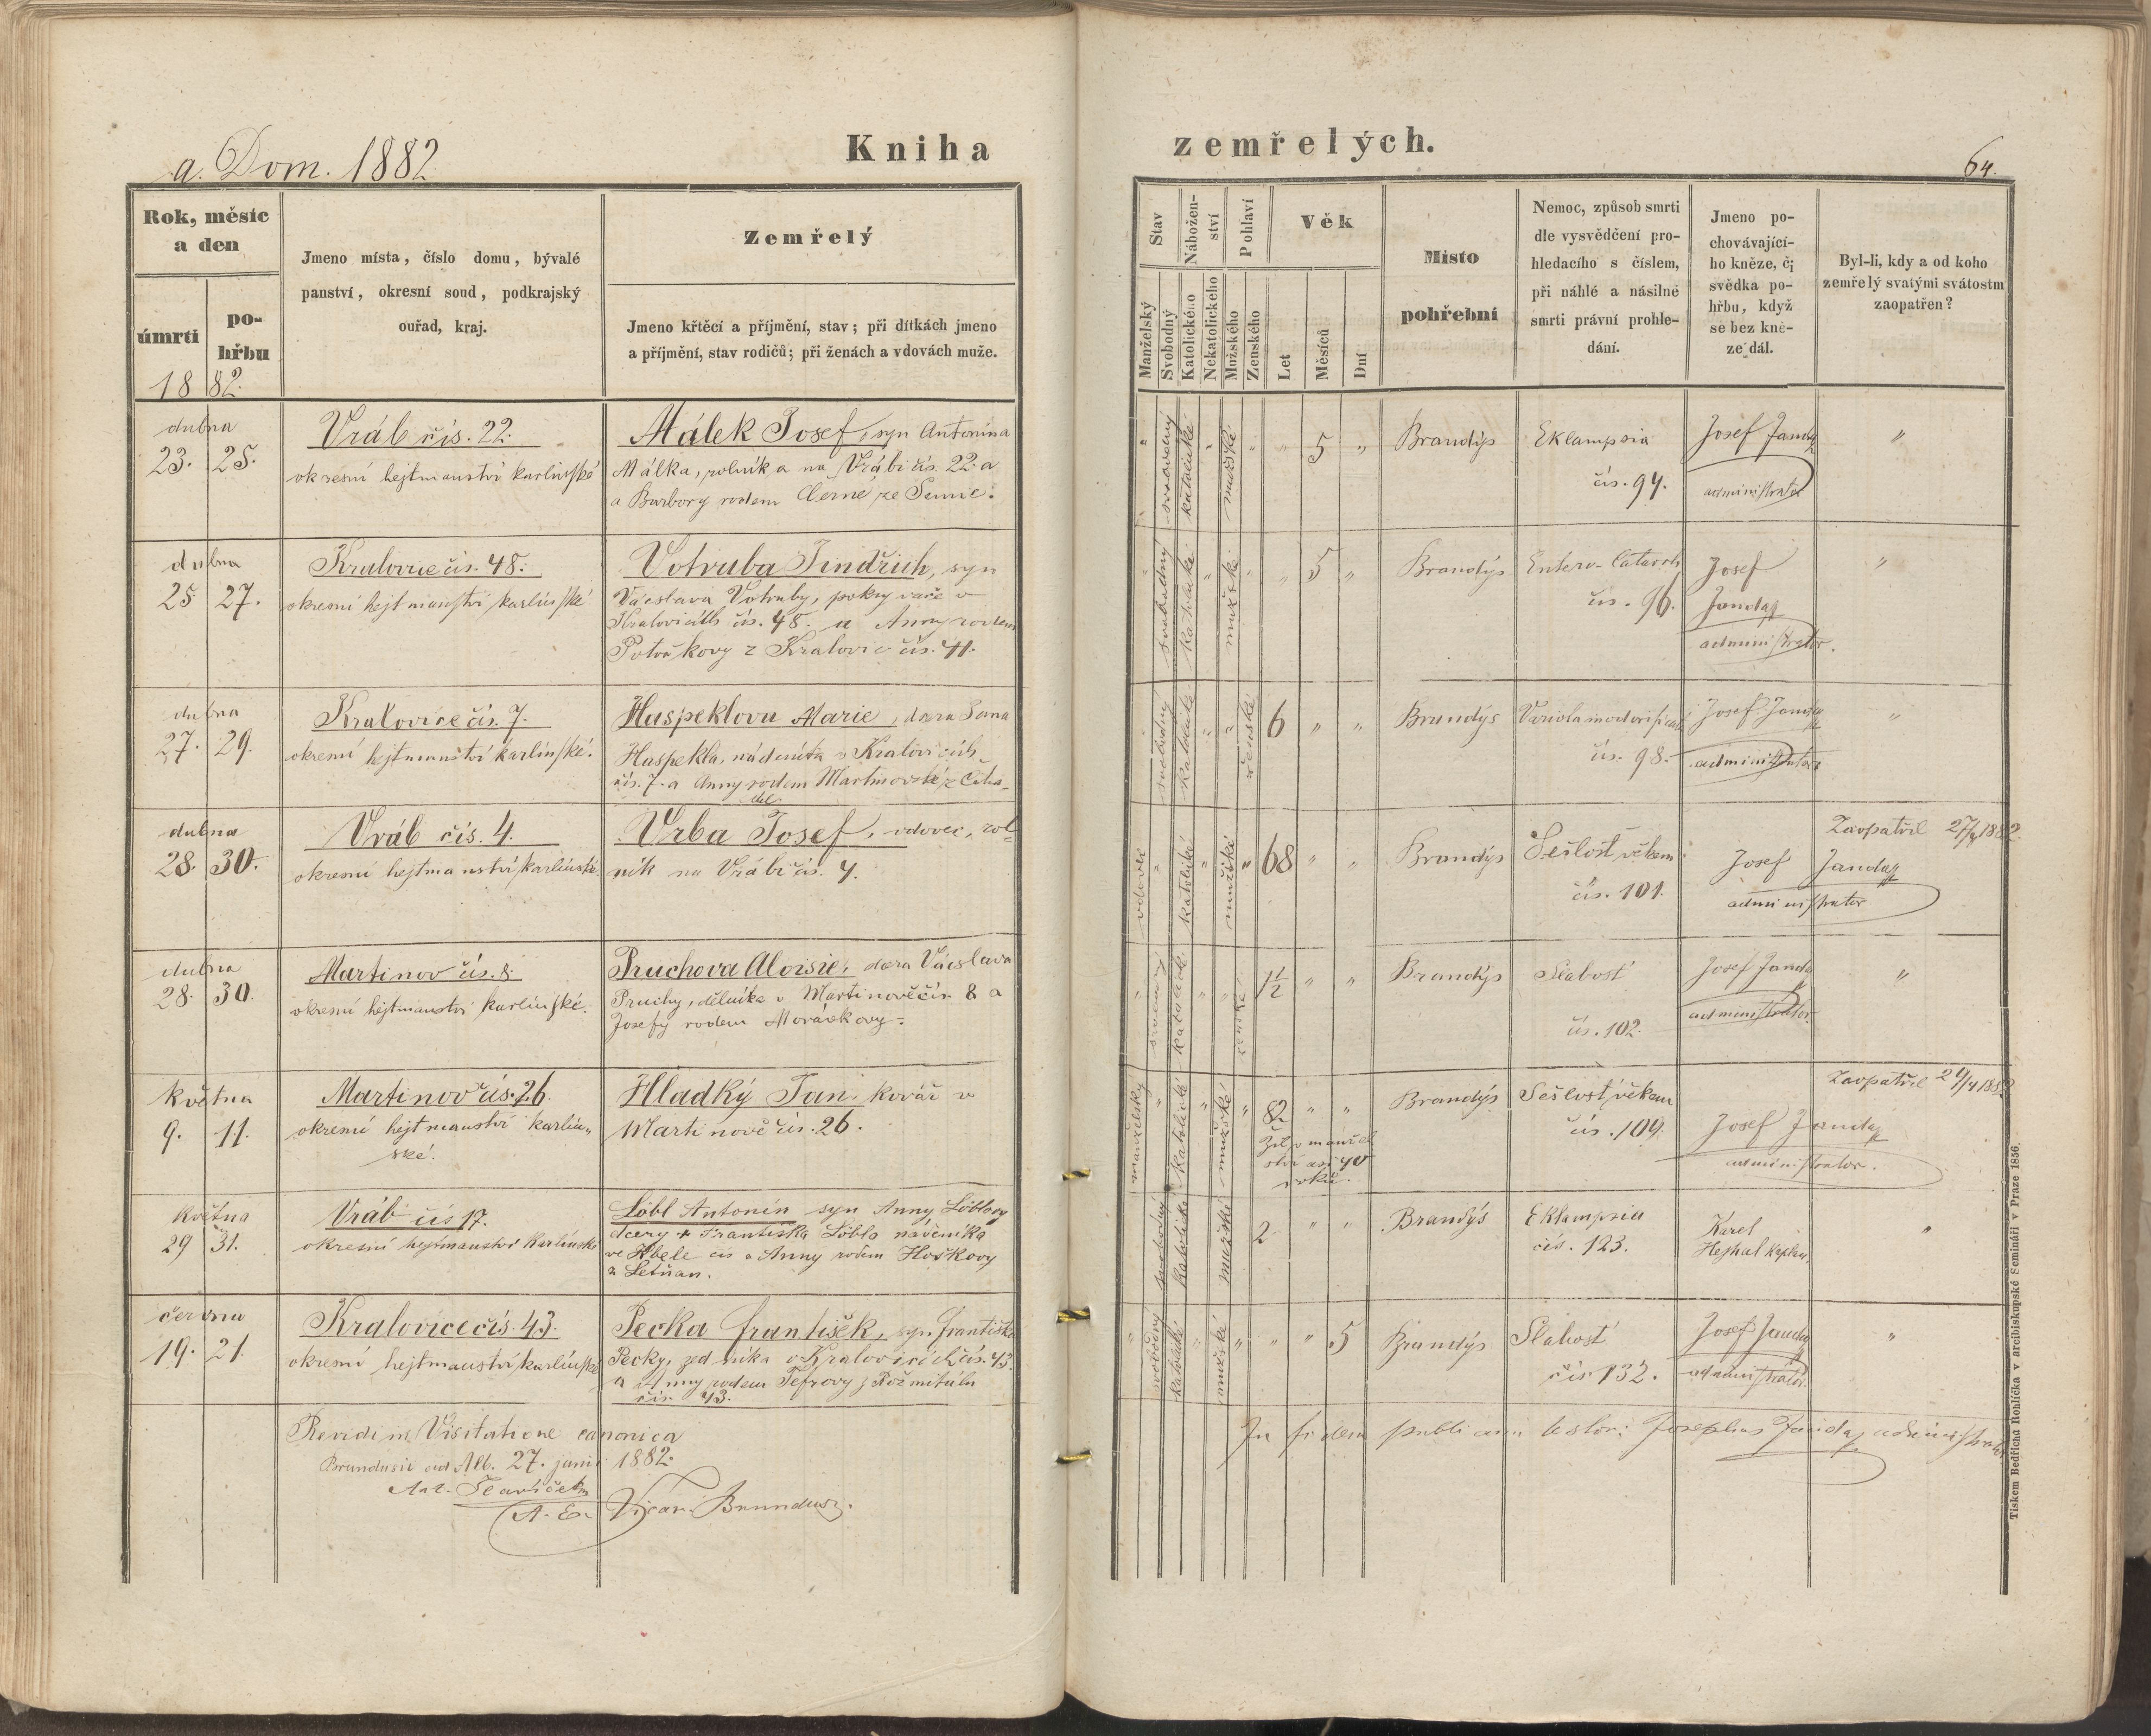 a. Dom. 1882
Kniha
Rok, měsíc
a den
úmrti
po-
hřbu
1882.
Jmeno místa, číslo domu, bývalé
panství, okresní soud, podkrajský
ouřad, kraj.
Zemřelý
Jmeno křtěcí a příjmění, stav; při dítkách jmeno
a příjmění, stav rodičů; při ženách a vdovách muže.
dubna
23. 25.
Vráb čís. 22.
okresní hejtmanství karlínské
Málek Josef, syn Antonína
Málka, rolníka na Vrábi čís. 22 a
a Barbory rodem Černé ze Semic.
dubna
25 27.
Kralovice čís. 48.
okresní hejtmanství karlínské
Votruba Jindřich, syn
Václava Votruby, pokrývače v
Kralovicích čís. 48. a Anny rodem
z Kralovic čís. 41.
dubna
27. 29.
Kralovice čís. 7.
okresní hejtmanství karlínské.
Huspeklova Marie, dcera Jana
Huspekla, nádeníka v Kralovicích
čís. 7. a Anny rodem Martinovské z Čiha-
del
dubna
28. 30.
Vráb čís. 4.
okresní hejtmanství karlínské
Vrba Josef, vdovec, rol-
ník na Vrábi čís. 4.
dubna
28. 30.
Martinov čís. 8.
okresní hejtmanství karlínské.
Pruchova Aloisie, dcera Václava
Pruchy, dělníka v Martinově čís. 8 a
Josefy rodem Morávkovy.
května
9. 11.
Martinov čís. 26.
okresní hejtmanství karlín-
ské.
Hladký Jan, kovář v
Martinově čís. 26.
května
29 31.
Vráb čís 17.
okresní hejtmanství Karlínské
Löbl Antonín syn Anny Löblovy
dcery + Františka Löbla
ve Kbele čís a Anny rodem Hoškovy
z Letňan.
června
19. 21.
Kralovice čís. 43.
okresní hejtmanství karlínské
Pecka František, syn Františka
Pecky, zedníka v Kralovicích čís. 43
a Anny rodem z Rožmitálu
čís. 43.
Revidi in Visitatione canonica
Brandusii ad Alb. 27. junii 1882.
A. E. Vicar. Brandus.
zemřelých.
64.
Stav
Nábožen-
ství
Pohlaví
Věk
Manželský
Svobodný
Katolického
Nekatolického
Mužského
Ženského
Let
Měsíců
Dní
Místo
pohřební
Nemoc, způsob smrti
dle vysvědčení pro-
hledacího s číslem,
při náhlé a násilné
smrti právní prohle-
dání.
Jmeno po-
chovávající-
ho kněze, či
svědka po-
hřbu, když
se bez kně-
ze dál.
Byl-li, kdy a od koho
zemřelý svatými svátostm
zaopatřen?
" svobodný katolické " mužské " " 5 " Brandýs Eklampsia Josef Janda "
čís. 94. administrator
" svobodný katolické " mužské " " 5 " Brandýs Entero-Catarrh Josef "
čís. 96. Janda
administrator.
" svobodný katolické " " ženské 6 " " Brandýs Variola modorificata Josef Janda "
čís. 98. administrator
vdovec " katolické " mužské " 68 " " Brandýs Sešlost věkem Zaopatřil 27/4 1882.
čís. 101. Josef Janda
administrator
" svobodný katolické " " ženské 1½ " " Brandýs Slabost Josef Janda "
čís. 102. administrator
manželský " katolické " mužské " 82 " " Brandýs Sešlost věkem Zaopatřil 29/4 1882
Žil v manžel
ství asi 40
roků.
čís. 109. Josef Janda
administrator.
svobodný katolické mužské 2 " " Brandýs Eklampsia Karel "
čís. 123. Hejhal kaplan.
" svobodný katolické " mužské " " " 5 Brandýs Slabost Josef Janda "
čís. 132. administrator
In fidem publicam testor: Josephus Janda, administrator
Tiskem Bedřicha Rohlíčka v arcibiskupské Semináři v Praze 1856.